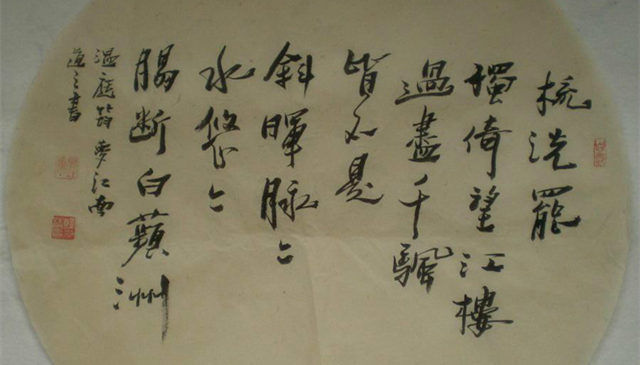 梳洗罷
獨倚望江樓
過盡千颿
皆不是
斜暉脉々
水悠々
腸断白蘋洲
温庭筠夢江南
之書